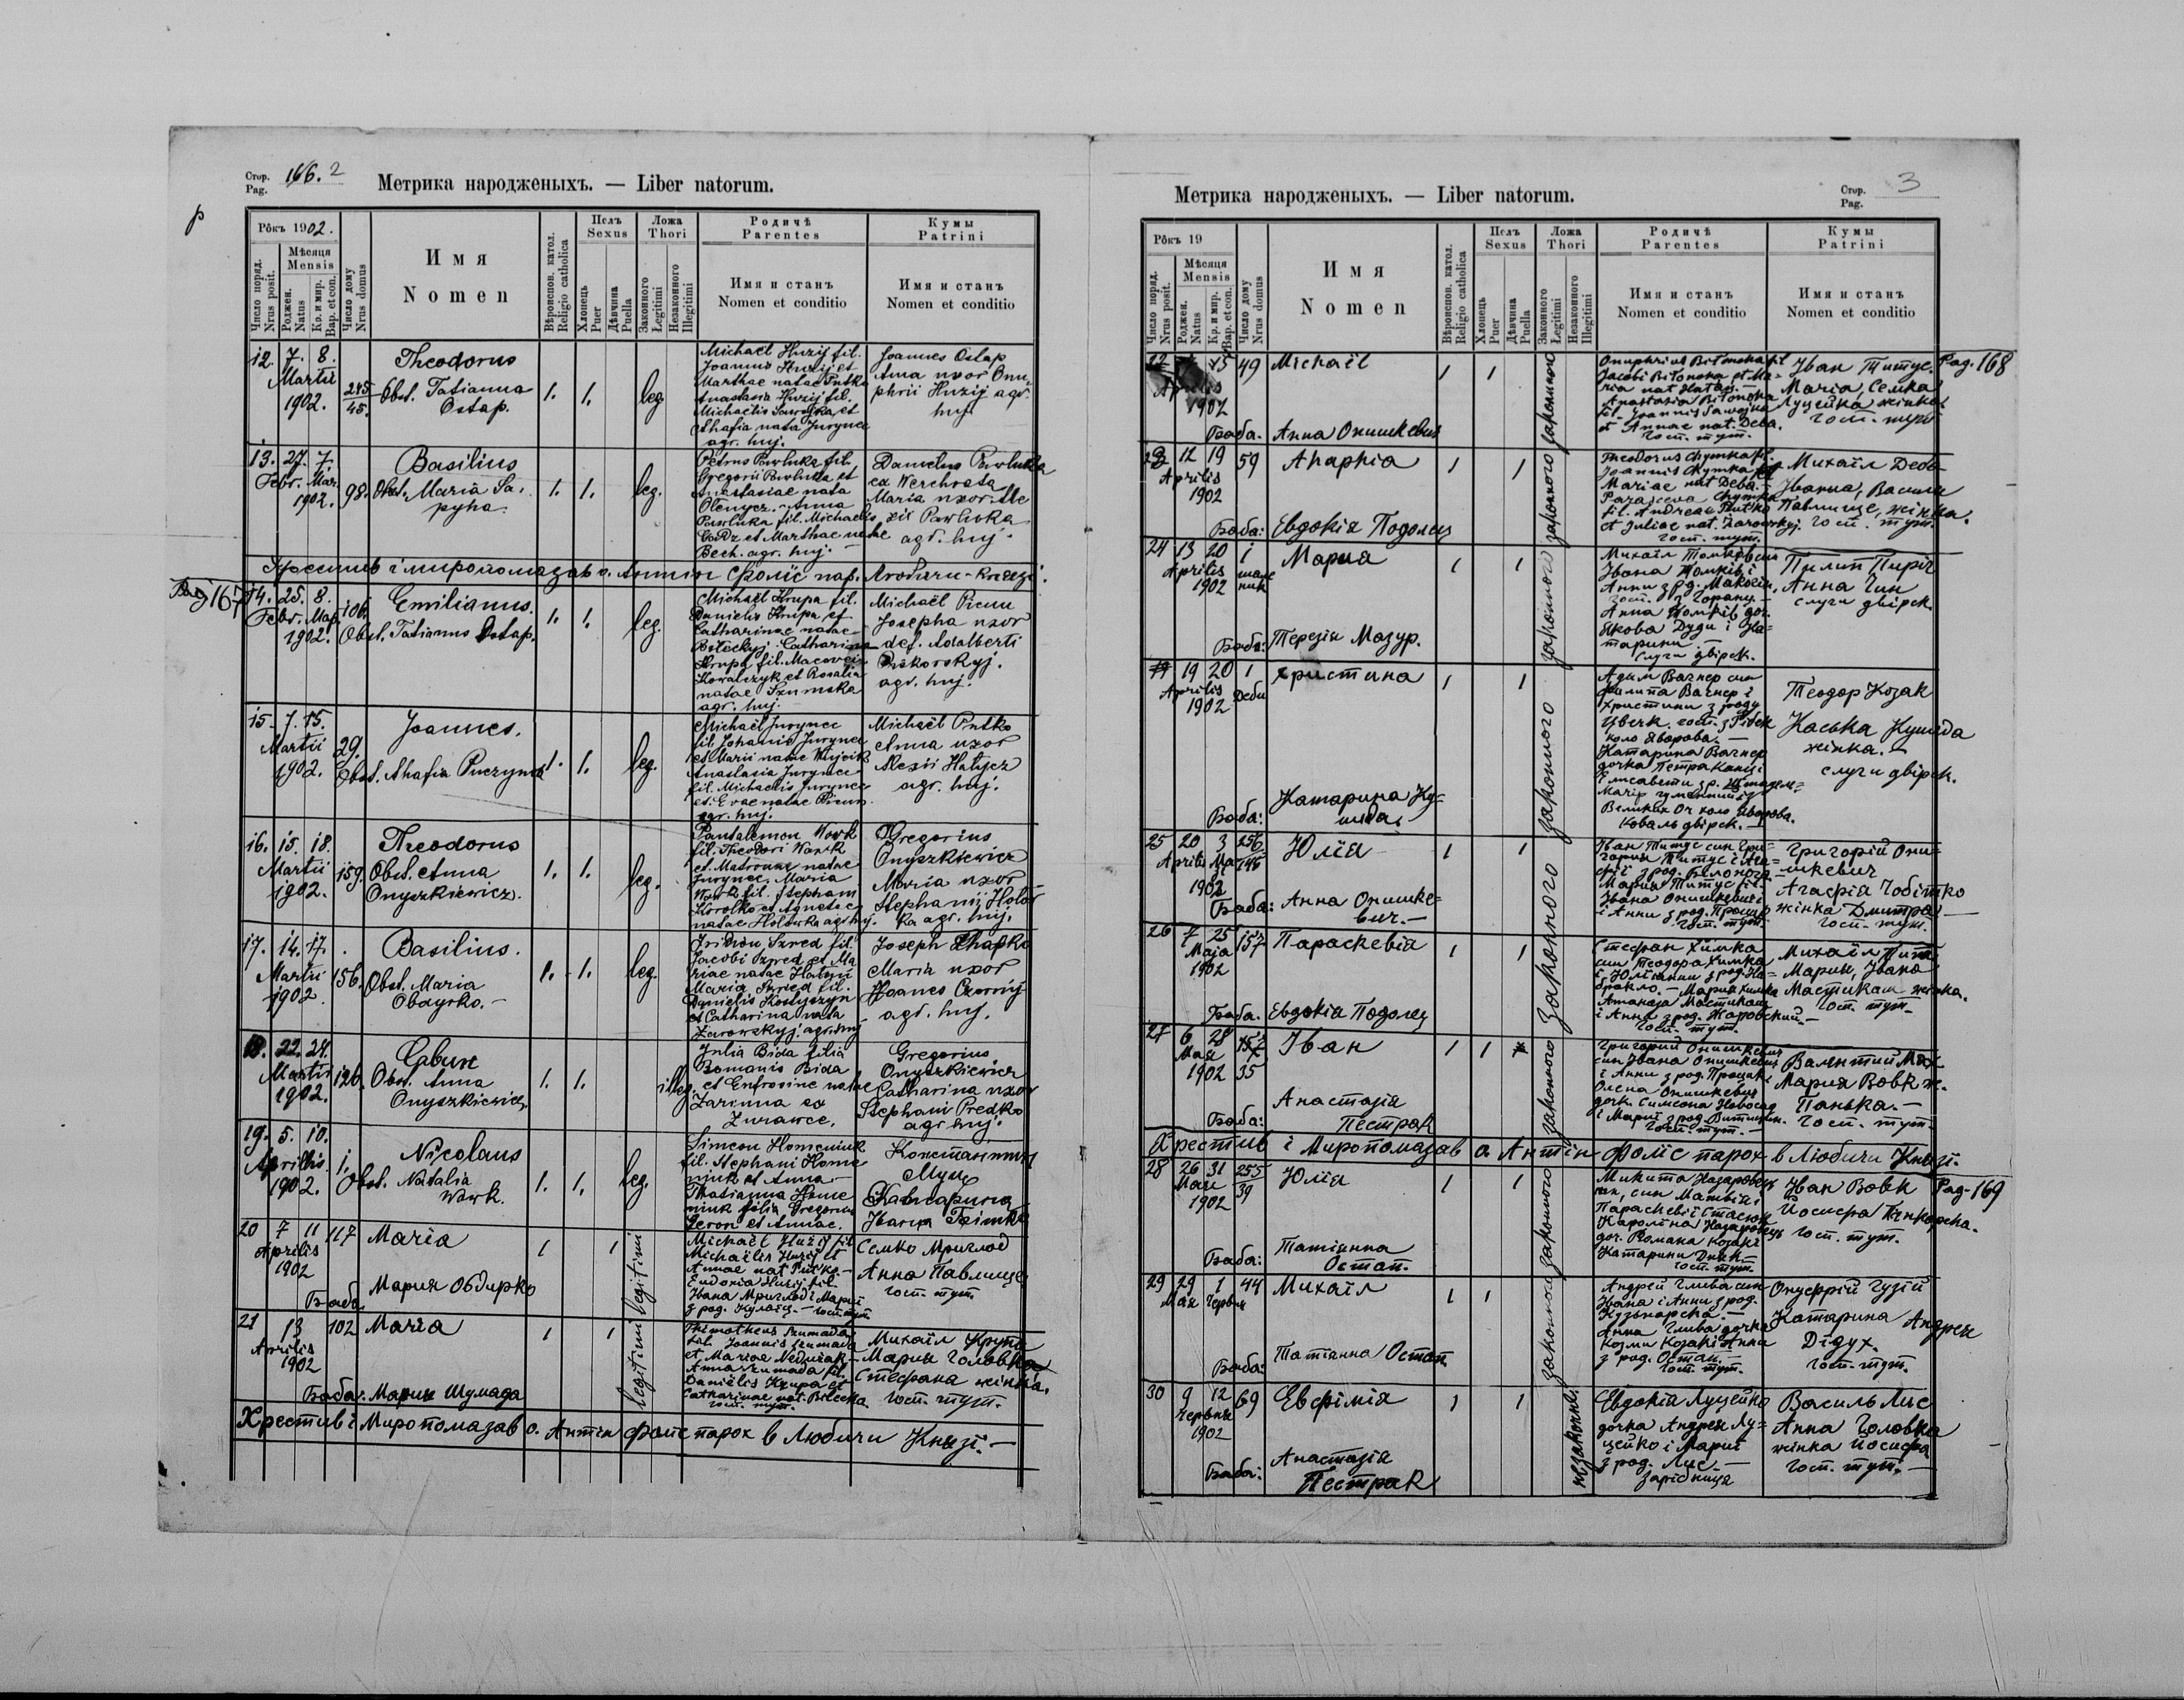 Стор.
Pag.
166. 2
Метрика народженыхъ. — Liber natorum.
Рôкъ 1902.
Число поряд.
Nrus posit.
Мѣсяця
Mensis
Роджен.
Natus
Кр. и мир.
Bap. et con.
Число дому
Nrus domus
Имя
Nomen
Вѣроиспов. катол.
Religio catholica
Полъ
Sexus
Хлопець
Puer
Дѣвчина
Puella
Ложа
Thori
Законного
Legitimi
Незаконного
Illegitimi
Родичѣ
Parentes
Имя и станъ
Nomen et conditio
Кумы
Patrini
Имя и станъ
Nomen et conditio
12. 7. 8.
Martii
1902.
245
45.
Theodorus
Obst. Tatianna
Ostap.
1. 1. leg.
Michaël Huzij fil.
Joannis Huzij et
Marthae natae Putko
Anastasia Huzij fil.
Michaelis Sawojka et
Ahafia nata Jurynec
agr. huj.
Joannes Ostap
Anna uxor Onu-
phrii Huzij agr.
huj.
13. 27. 7.
Febr. Mar.
1902.
98.
Basilius
Obst. Maria Sa-
pyha.
1. 1. leg.
Petrus Pawluka fil.
Gregorii Pawluka et
Anastasiae nata
Anna
Pawluka fil. Michaelis
et Marthae natae
Bech. agr. huj. —
Danielus Pawluka
ex Werchrata
Maria uxor
Pawluka
agr. huj.
Хрестив і миропомазав о. Антін Фоліс пар. Любичи-Князі.
Pag 167
14. 25. 8.
Febr. Мар.
1902.
106.
Emilianus.
Obst. Tatianna Ostap.
1. 1. leg.
Michaël Krupa fil.
Danielis Krupa et
Catharinae natae
Biłeckyj. Catharina
Krupa fil.
Kowalczyk et Rosalia
natae Szumska
agr. huj.
Michaël Picun
Josepha uxor
def. Adalberti
Piskorskyj.
agr. huj.
15. 7. 15.
Martii
1902.
29.
Joannes.
Obst. Ahafia Puczyna
1. 1. leg.
Michaël Jurynec
fil. Johanis Jurynec
et Marii natae Wujcik
Anastasia Jurynec
fil. Michaelis Jurynec
et Evae natae Picun.
agr. huj.
Michaël Putko
Anna uxor
Alexii Hałycz
agr. huj.
16. 15. 18.
Martii
1902.
159.
Theodorus
Obst. Anna
Onyszkiewicz.
1. 1. leg.
Pantalemon Wowk
fil. Theodori Wowk
et Matronae natae
Jurynec. Maria
Wowk fil. Stephani
Korolko et Agnetae
natae Hołowka agr. huj.
Gregorius
Onyszkiewicz
Maria uxor
Stephanij Hołow-
ka agr. huj.
17. 14. 17.
Martii
1902
156.
Basilius.
Obst. Maria
Obdyrko. —
1. 1. leg.
Szred fil.
Jacobi Szred et Ma
riae natae
Maria Szred fil.
Danielis Kostyszyn
et Catharina nata
Żurowskyj. agr. huj
Joseph
Maria uxor
Joanes Czornij
agr. huj.
18. 22. 24.
Martii
1902.
126.
Obst. Anna
Onyszkiewicz
1. 1. illeg.
Julia Bida filia
Romanis Bida
et Eufrosine natae
Zarinna ex
Zurawce.
Gregorius
Onyszkiewicz
Catharina uxor
Stephani Predko
agr. huj.
19. 5. 10.
Aprilis
1902.
1.
Nicolaus
Obst. Natalia
Wowk.
1. 1. leg.
Simeon Homeniuk
fil. Stephani Home
niuk et Anna —
Tatianna Home
niuk filia Gregorius
Geron et Annae.
Константин
Муц
Катарина
Ивана
20 7 11 117
Aprilis
1902
Maria
Баба. Мария Обдирко
1 1 legitimi
Michaël Huzij fil
Michaëlis Huzij et
Annae nat Put'ko —
Eudoxia Huzij fil.
Ивана Приглод і Марії
з род. Кулаїц. — гост. тут
Семко Приглод
Анна Павлище
гост. тут.
21 13 102
Aprilis
1902
Maria
Баба: Мария Шумада
1 1 legitimi
Thimotheus Szumada
fil. Joannis Szumada
et Mariae Neduzak —
Anna Szumada fil.
Daniëlis Krupa et
Catharinae nat. Biłecka.
гост. тут.
Михаїл Крупа
Мария Головка
Стефана жінка.
гост. тут.
Хрестив і Миропомазав о. Антін Фоліс парох в Любичи Князі. —
Метрика народженыхъ. — Liber natorum.
Стор.
Pag.
3
Рôкъ 19
Число поряд.
Nrus posit.
Мѣсяця
Mensis
Роджен.
Natus
Кр. и мир.
Bap. et con.
Число дому
Nrus domus
Имя
Nomen
Вѣроиспов. катол.
Religio catholica
Полъ
Sexus
Хлопець
Puer
Дѣвчина
Puella
Ложа
Thori
Законного
Legitimi
Незаконного
Illegitimi
Родичѣ
Parentes
Имя и станъ
Nomen et conditio
Кумы
Patrini
Имя и станъ
Nomen et conditio
22 15 49
Aprilis
1902
Michaël
Баба. Анна Онишкевич
1 1 законного
Onuphrius Biłonoha fil
Jacobi Biłonoha et Ma-
ria nat Hałan. —
Anastasia Biłonoha
fil. Joannis Sawojka
et Annae nat. Deba.
гост. тут.
Іван Титус.
Марія, Семка
Луцейка жінка
гост. тут
Pag. 168
23 12 19 59
Aprilis
1902
Ahaphia
Баба: Евдокія Подолец
1 1 законного
Theodorus Chymka fil.
Joannis Chymka et
Mariae nat Deba. —
Parasceva Chymka
fil. Andreae Put'ko
et Juliae nat. Żarowskyj.
гост. тут.
Михаїл Деба
Іванна, Василя
Павлище, жінка.
гост. тут.
24 13 20 1
Aprilis
1902
Мария
Баба: Терезія Мазур.
1 1 законного
Михаїл Томків син
Івана Томків і
Анни з рд. Макогін,
гост. з
Анна Томків доч.
Якова Дуди і Ка-
тарини —
слуги двірск.
Пилип Пиріг
Анна Чик
слуги двірск.
19 20 1
Aprilis
1902
Деби
Христина
Баба: Катарина Ку-
шида,
1 1 законного
Адам Вагнер син
Филипа Вагнер і
Христини з роду
Цвек. гост. з
коло Яворова. —
Катарина Вагнер
дочка Петра
Елисавети з р.
Великих Оч коло Яворова.
Коваль двірск. —
Теодор Козак
Каська Кушида
жінка. —
слуги двірск.
25 20 3 256
Aprilis Мая 145
1902
Юлія
Баба: Анна Онишке-
вич. —
1 1 законного
Іван Титус син Гри-
гория Титус і Ага-
фії з род. Белонога
Мария Титус
Івана Онишкевич
і Анни з род. Процик
гост. тут.
Григорій Они-
шкевич
Агафія Чобітко
жінка Дмитра —
гост. тут.
26 7 25 157
Maja
1902
Параскевія
Баба. Евдокія Подолец
1 1 законного
Стефан Химка
син Теодора Химка
і Юліянни з род.
Мария Химка
Атаназа Мастикаш
і Анна з род. Жаровский. —
гост. тут.
Михаїл
Мария, Івана
Мастикаш жінка.
гост. тут. —
27 6 28
Мая
1902 35
Іван
Баба: Анастазія
Пестрак
1 1 законного
Григорий Онишкевич
син Івана Онишкевич
і Анни з род. Процик
Олена Онишкевич
дочк. Симеона Новосад
і Марії з род.
гост. тут. —
Валентий Мах
Мария Вовк ж.
Панька. —
гост. тут.
Хрестив і Миропомазав о. Антін Фоліс парох в Любичи Князі.
28 26 31 255
Мая 39
1902
Юлія
Баба: Татіянна
Остап.
1 1 законного
Микита Назаровець
син Матвія і
Параскевії Стасюк
Кароліна Назаровець
доч. Романа Козак і
Катарини Дник —
гост. тут.
Іван Вовк
Йосифа
гост. тут.
Pag-169
29 29 1 44
Мая Червня
Михаїл
Баба: Татіянна Остап.
1 1 законного
Андрей Глива син
Івана і Анни з род.
Анна Глива дочка
Козми Козак і Анна
з род. Остап. —
гост. тут.
Онуфрій Гузій
Катарина Андрея
Дідух.
гост. тут.
30 9 12 69
Червня
1902
Евфімія
Баба: Анастазія
Пестрак
1 1 незаконна.
Евдокія Луцейко
дочка Андрея Лу-
цейко і Марії
з род. Лис. —
зарібниця
Василь Лис
Анна Головка
жінка Йосифа
гост. тут. —